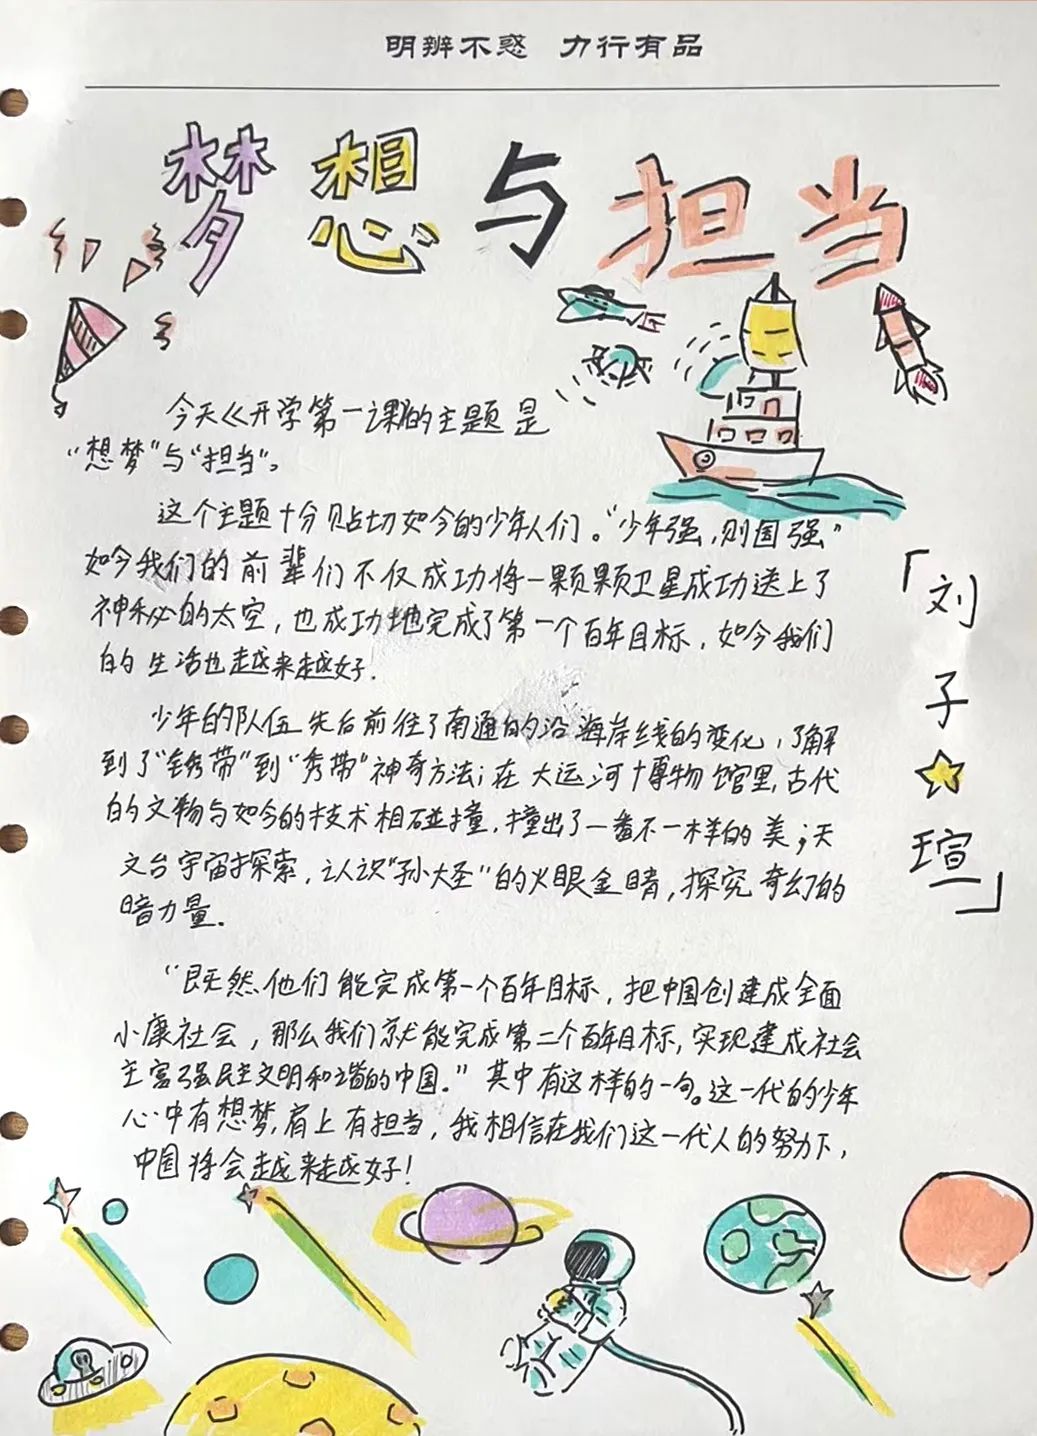 明辨不惑 力行有品
梦想与担当
今天《开学第一课的主题是
“想梦”与“担当”。
这个主题十分贴切如今的少年人们。“少年强,则国强”
如今我们的前辈们不仅成功将一颗颗卫星成功送上了
神秘的太空,也成功地完成了第一个百年目标,如今我们
的生活也越来越好.
少年的队伍先后前往了南通的沿海岸线的变化,了解
到了“锈带”到“秀带”神奇方法;在大运河博物馆里,古代
的文物与如今的技术相碰撞,撞出了一番不一样的美;天
文台宇宙探索,认识“孙大圣”的火眼金睛,探究奇幻的
暗力量.
“既然他们能完成第一个百年目标,把中国创建成全面
小康社会,那么我们就能完成第二个百年目标,实现建成社会
主富强民主文明和谐的中国.”其中有这样的一句。这一代的少年
心中有想梦,肩上有担当,我相信在我们这一代人的努力下,
中国将会越来越好!
「刘子☆瑄」